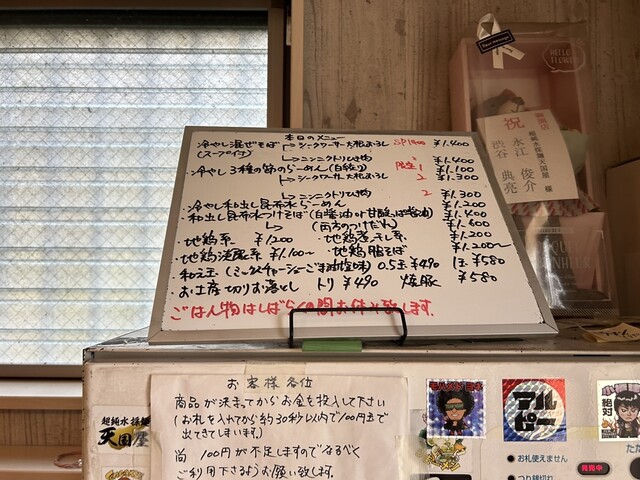 本日のメニュー
冷やし混ぜそば
(スープ付)
↳シークワーサー大根おろし ¥1.400
↳ニンニクトリ ¥1.400
冷やし3種の節のらーめん(白絞り) 限定1 ¥1.100
↳シークワーサー大根おろし 2 ¥1.300
↳ニンニクトリ 2 ¥1.300
冷やし和出し昆布水らーめん ¥1.200
和出し昆布水つけそば(白醤油or甘酸っぱ醤油) ¥1.400
↳(両方のつけだれ) ¥1.600
・地鶏系 ¥1200 ・地鶏煮干し系 ¥1.200
・地鶏淡麗系 ¥1.100〜 ・地鶏脂そば ¥1.200〜
和え玉(ミックスチャーシューごま油塩味) 0.5玉¥490 1玉¥580
お土産切りお落とし トリ¥490 焼豚 ¥580
ごはん物はしばらくの間お休み致します.
HELLO FLOWER
御開店
祝
超純水採麺天国屋 様
永江 俊介
渋谷 典亮
お客様各位
商品が決まってからお金を投入して下さい
(お札を入れてから約30秒以内で100円玉で
出てきてしまいます。)
尚 100円が不足しますのでなるべく
ご利用下さるようお願い致します。
超純水 採麺
天国屋
アルピー
お札使えません
つり銭切れ
発売中
絶対